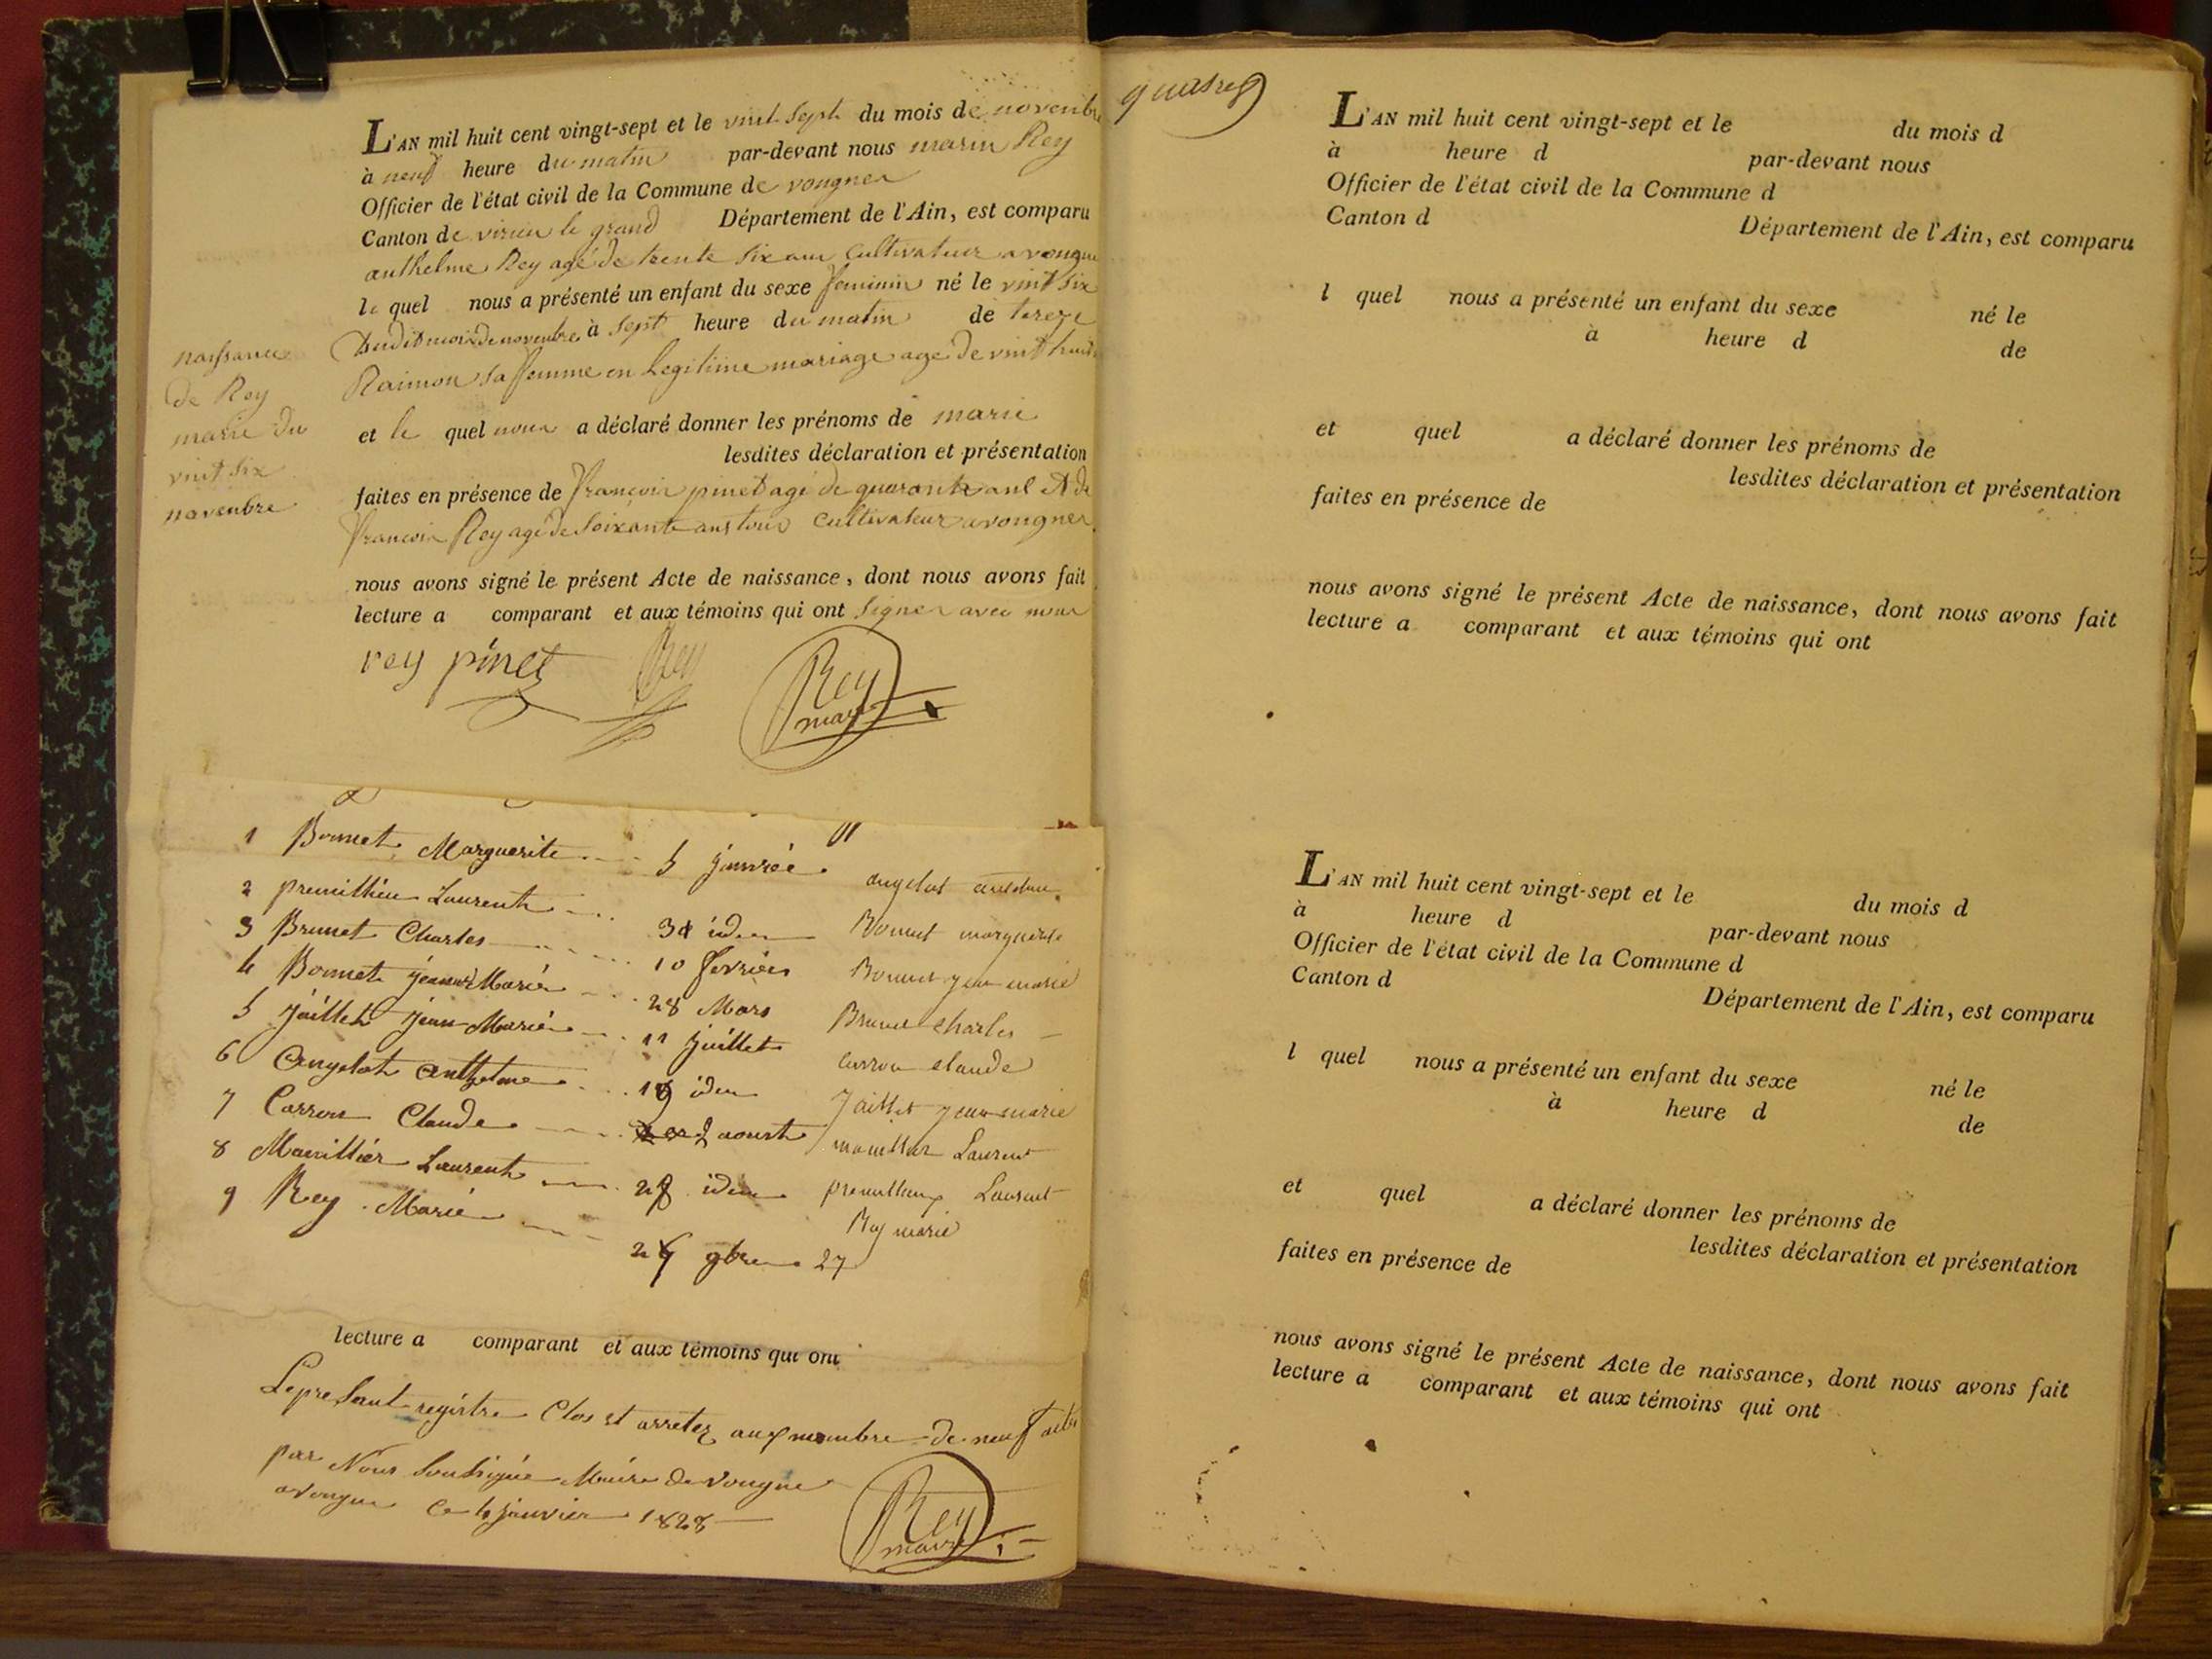 L'AN mil huit cent vingt-sept et le vint sept du mois de novenbre
à neuf heure du matin par-devant nous marin Rey
Officier de l'état civil de la Commune de vongnes
Canton de virieu le grand Département de l'Ain, est comparu
anthelme Rey agé de trente six ans cultivateur a vongne
le quel nous a présenté un enfant du sexe feminin né le vint six
dudit mois de novenbre à sept heure du matin de tereze
Raimon sa femme en Legitime mariage age de vint huit
et le quel nous a déclaré donner les prénoms de marie
lesdites déclaration et présentation
faites en présence de francois pinet agé de quarante ans et de
francois Rey agé de soixante ans tous cultivateur a vongnes
nous avons signé le présent Acte de naissance, dont nous avons fait
lecture a comparant et aux témoins qui ont signer avec nous
rey pinet Rey Rey
maire
naissance
de Rey
marie du
vint six
novenbre
1 Bonnet Marguerite 5 janviée
2 premillieu Laurent 31 idem
3 Brunet Charles 10 fevriér
4 Bonnet jeane Marié 28 Mars
5 jaillet jean Marié 11 juillet
6 Angelot anthelme 19 idem
7 Carron Claude 2 aoust
8 Marillier Laurent 28 idem
9 Rey Marié 27 9bre 27
angelot anthelme
Bonnet marguerite
Bonnet jean marie
Brunet charles
carron claude
Jaillet jean marie
marillier Laurent
premillieux Laurent
Rey marie
lecture a comparant et aux témoins qui ont
Le presant registre Clos et arretez aux nombre de neuf actes
par Nous Soussigné Maire de vongne
a vongne Ce 4 janvier 1828
Rey
maire
quatre
L'AN mil huit cent vingt-sept et le du mois d
à heure d par-devant nous
Officier de l'état civil de la Commune d
Canton d Département de l'Ain, est comparu
l quel nous a présenté un enfant du sexe né le
à heure d de
et quel a déclaré donner les prénoms de
lesdites déclaration et présentation
faites en présence de
nous avons signé le présent Acte de naissance, dont nous avons fait
lecture a comparant et aux témoins qui ont
L'AN mil huit cent vingt-sept et le du mois d
à heure d par-devant nous
Officier de l'état civil de la Commune d
Canton d Département de l'Ain, est comparu
l quel nous a présenté un enfant du sexe né le
à heure d de
et quel a déclaré donner les prénoms de
lesdites déclaration et présentation
faites en présence de
nous avons signé le présent Acte de naissance, dont nous avons fait
lecture a comparant et aux témoins qui ont